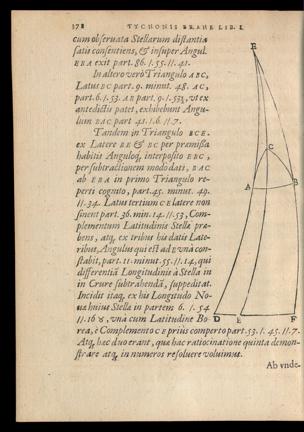 178 TYCHONIS BRAHE LIB. I.
cum obseruata Stellarum distantia
satis consentiens, & insuper Angul.
EBA exit part. 86. /. 55. //. 41.
In altero verò Triangulo ABC,
Latus BC part. 9. minut. 48. AC,
part. 6. /. 53. AB part. 9. /. 53½, vt ex
antedictis patet, exhibebunt Angu-
lum BAC part 41. /. 6. //. 7.
Tandem in Triangulo BCE.
ex Latere BE & BC per præmissa
habitis Anguloq, interposito EBC,
per subtractionem modo dati, BAC
ab EBA in primo Triangulo re-
perti cognito, part. 45. minut. 49.
//. 34. Latus tertium CE latere non
sinent part. 36. min. 14. //. 53, Com-
plementum Latitudinis Stellæ præ-
bens, atq, ex tribus his datis Late-
ribus, Angulus qui est ad E vnà con-
stabit, part. 11. minut. 55. //. 14, qui
differentiā Longitudinis à Stella in
Crure subtrahendā, suppeditat.
Incidit itaq, ex his Longitudo No-
uæ huius Stellæ in partem 6. /. 54
vna cum Latitudine Bo-
rea, è Complemento CE prius comperto part. 53. /. 45. //. 7.
Atq, hæc duo erant, quæ hac ratiocinatione quinta demon-
strare atq, in numeros resoluere voluimus.
Ab vnde-
E
C
A
B
D
E
F